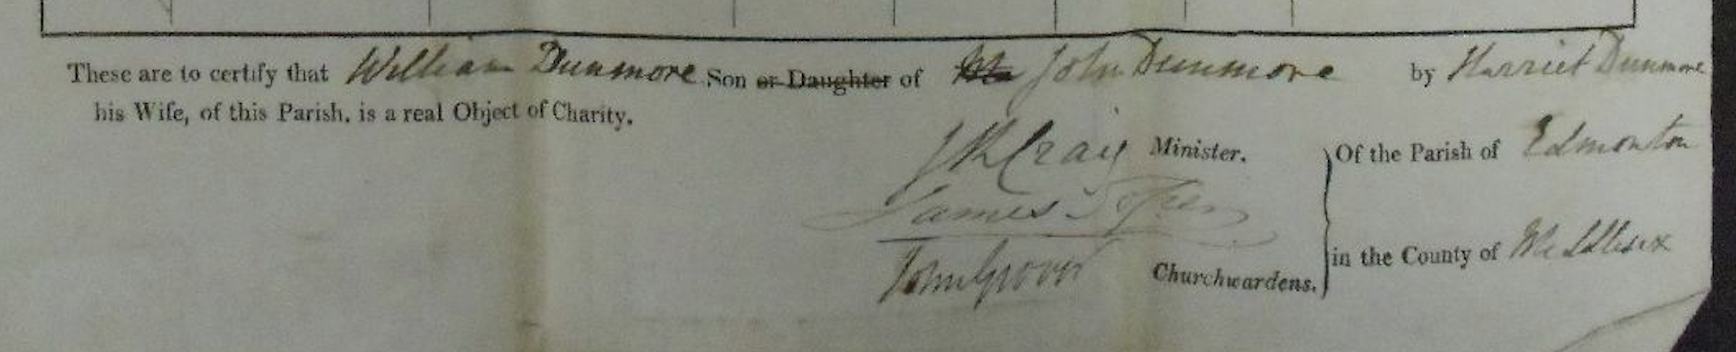 These are to certify that William Dunmore Son or Daughter of John Dunmore by Harriet Dunmore
his Wife, of this Parish, is a real Object of Charity.
J K Craig Minister. Of the Parish of Edmonton
James
John Grove Churchwardens. in the County of Middlesex